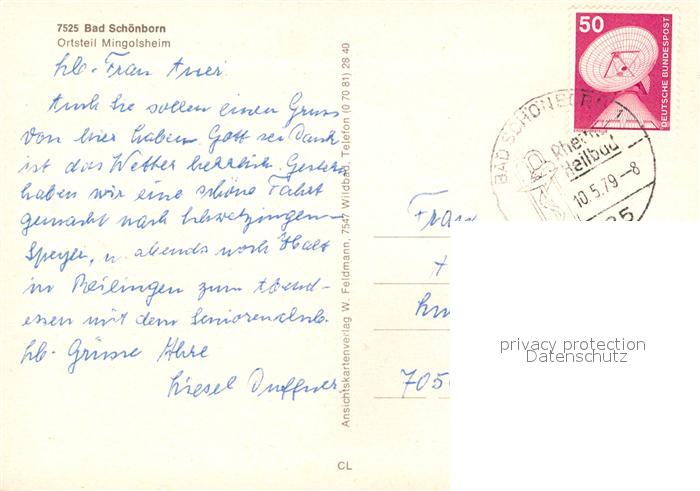 7525 Bad Schönborn
Ortsteil Mingolsheim
lb. Frau Auer.
Auch Sie sollen einen Gruss
von hier haben. Gott sei Dank
ist das Wetter herrlich. Gestern
haben wir eine schöne Fahrt
gemacht nach Schwetzingen –
Speyer, u. abends noch Halt
in Reilingen zum Abend-
essen mit dem Seniorenclub.
lb. Grüsse Ihre
Liesel Duffner
Ansichtskartenverlag W. Feldmann, 7547 Wildbad, Telefon (0 70 81) 28 40
CL
50
DEUTSCHE BUNDESPOST
BAD SCHÖNBORN 1
Heilbad
10.5.79-8
Frau
705
privacy protection
Datenschutz